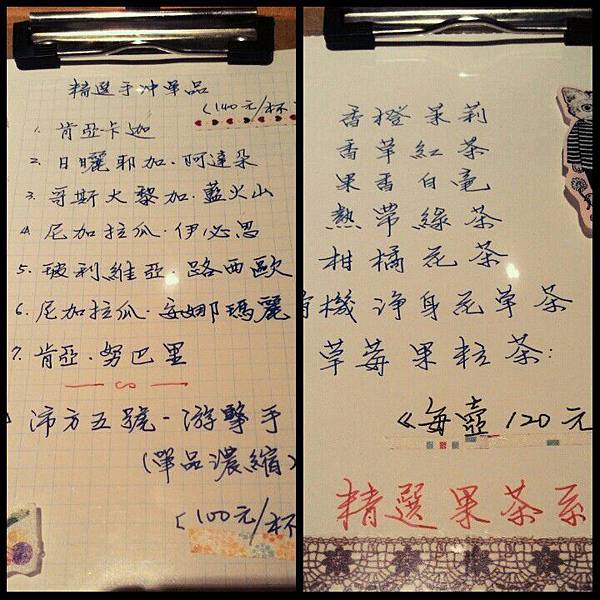 精選手冲單品
(140元/杯
1. 肯亞卡迦
2. 日曬耶加·阿達朵
3. 哥斯大黎加·藍火山
4. 尼加拉瓜·伊必思
5. 玻利維亞·路西歐
6. 尼加拉瓜·安娜瑪麗
7. 肯亞·努巴里
沛方五號-游擊手
(單品濃縮)
(100元/杯
香橙茉莉
香草紅茶
果香白毫
熱帶綠茶
柑橘花茶
有機淨身花草茶
草莓果粒茶:
《每壺120元
精選果茶系